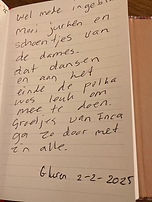 wel mede ingebl
Mooi jurken en
schoentjes van
de dames.
dat dansen
en aan het
einde de polka
was leuk om
mee te doen.
Groetjes van Inca
ga zo door met
z'n alle.
2-2-2025